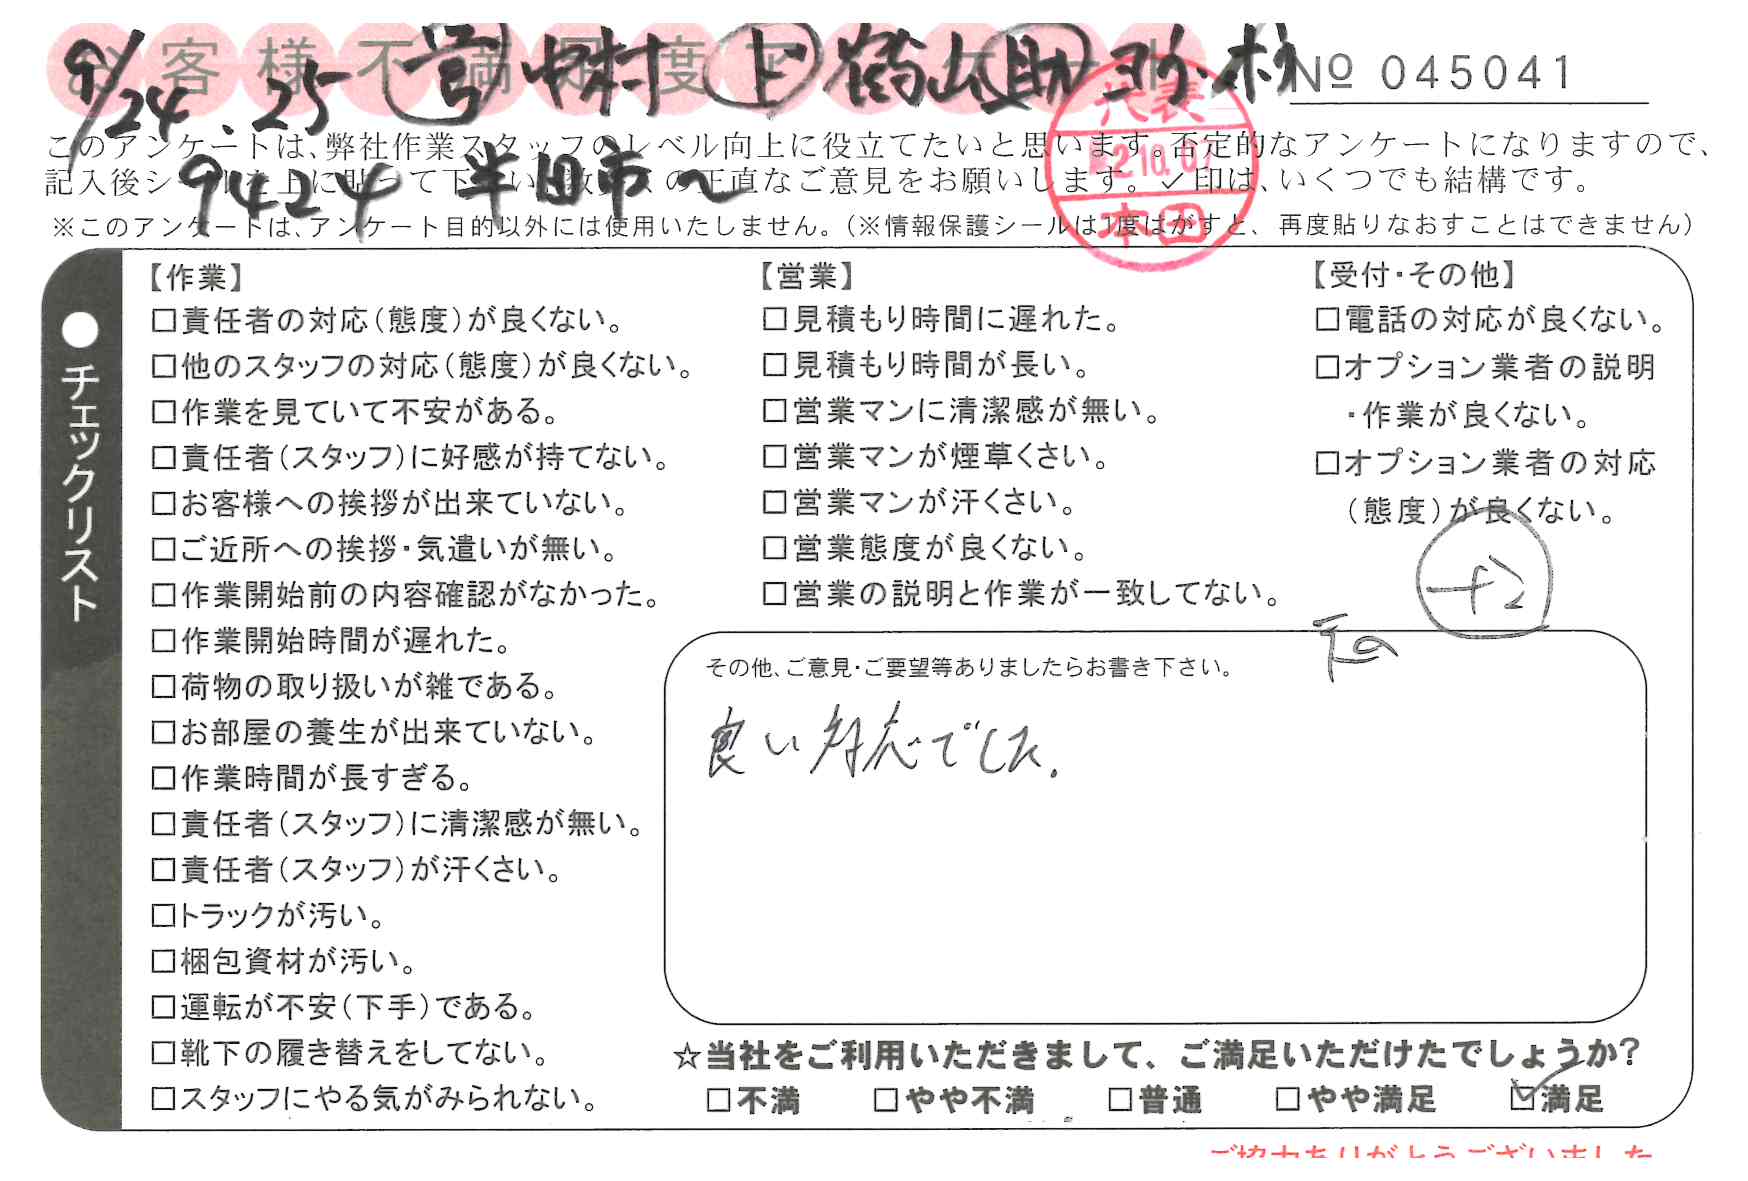 お客様不満足度アンケート
9/24.25 営 中村 上 鶴山 助
No 045041
9424 半田市〜
代表
2.10.07
本田
このアンケートは、弊社作業スタッフのレベル向上に役立てたいと思います。否定的なアンケートになりますので、
記入後シールを上に貼って下さい。数多くの正直なご意見をお願いします。✓印は、いくつでも結構です。
※このアンケートは、アンケート目的以外には使用いたしません。（※情報保護シールは1度はがすと、再度貼りなおすことはできません）
●チェックリスト
【作業】
□責任者の対応（態度）が良くない。
□他のスタッフの対応（態度）が良くない。
□作業を見ていて不安がある。
□責任者（スタッフ）に好感が持てない。
□お客様への挨拶が出来ていない。
□ご近所への挨拶・気遣いが無い。
□作業開始前の内容確認がなかった。
□作業開始時間が遅れた。
□荷物の取り扱いが雑である。
□お部屋の養生が出来ていない。
□作業時間が長すぎる。
□責任者（スタッフ）に清潔感が無い。
□責任者（スタッフ）が汗くさい。
□トラックが汚い。
□梱包資材が汚い。
□運転が不安（下手）である。
□靴下の履き替えをしてない。
□スタッフにやる気がみられない。
【営業】
□見積もり時間に遅れた。
□見積もり時間が長い。
□営業マンに清潔感が無い。
□営業マンが煙草くさい。
□営業マンが汗くさい。
□営業態度が良くない。
□営業の説明と作業が一致してない。
【受付・その他】
□電話の対応が良くない。
□オプション業者の説明
・作業が良くない。
□オプション業者の対応
（態度）が良くない。
+2
その他、ご意見・ご要望等ありましたらお書き下さい。
良い対応でした.
☆当社をご利用いただきまして、ご満足いただけたでしょうか？
□不満 □やや不満 □普通 □やや満足 ☑満足
ご協力ありがとうございました